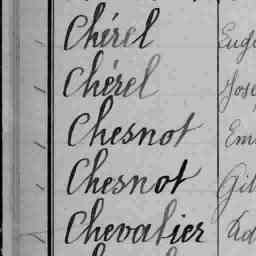 Chérel Eug
Chérel Jose
Chesnot Em
Chesnot Gil
Chevalier Ad